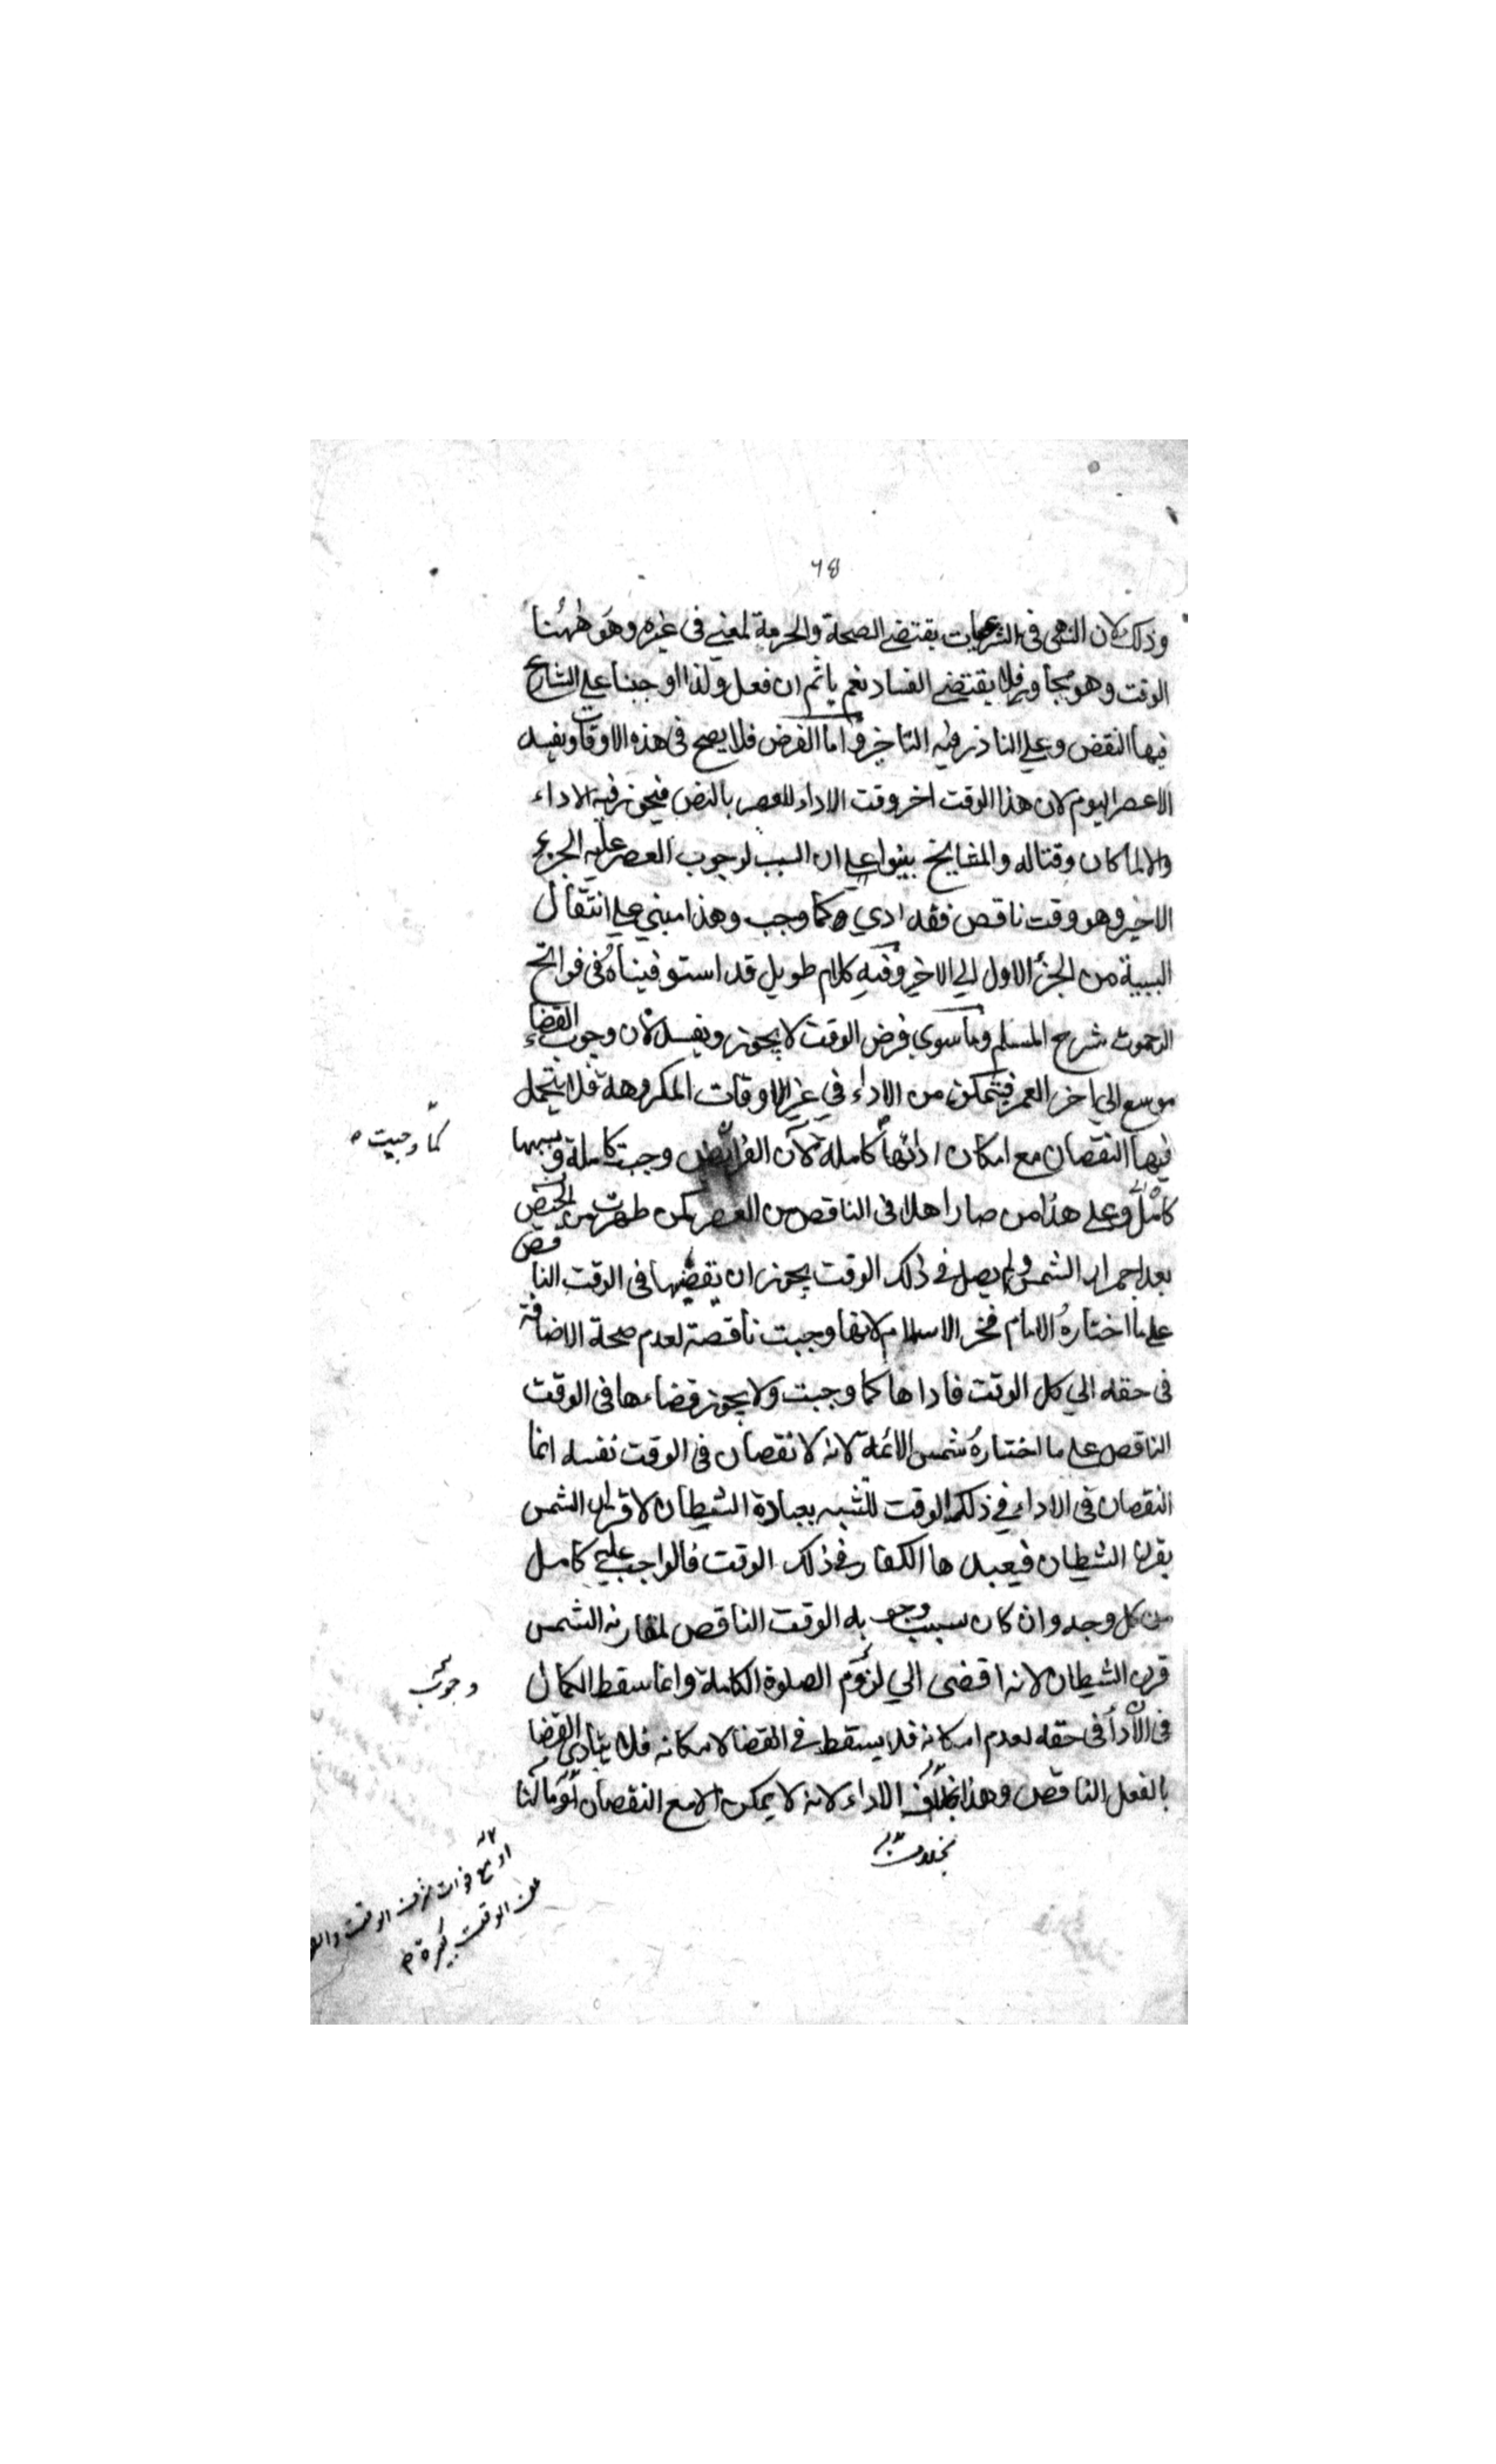 ٦٤
وذلك لان النهى فى الشرعيات يقتضى الصحة والحرمة لمعنى فى غيره وهو ههنا
الوقت وهو مجاور فلا يقتضى الفساد نعم ياثم ان فعل ولذا اوجبنا على الشارع
فيها النقض وعلى الناذر فيه التاخير واما الفرض فلا يصح فى هذه الاوقات ويفسد
الا عصر اليوم لان هذا الوقت اخر وقت الاداء للعصر بالنص فيجوز فيه الاداء
والا لما كان وقتا له والمشايخ بينوا على ان السبب لوجوب العصر عليه الجزء
الاخير وهو وقت ناقص فقد ادي كما وجب وهذا مبني على انتقال
السببية من الجزء الاول الي الاخير وفيه كلام طويل قد استوفيناه فى فواتح
الرحموت شرح المسلم وما سوي فرض الوقت لا يجوز ويفسد لان وجوب القضاء
موسع الي اخر العمر فيتمكن من الاداء في غير الاوقات المكروهة فلا يتحمل
فيها النقصان مع امكان ادائها كاملة لان الفرائض وجبت كاملة وسببها
كما وجبت
كامل وعلى هذا من صار اهلا فى الناقص من العصر كمن طهرت من الحيض
بعد احمرار الشمس ولم يصل فى ذلك الوقت يجوز ان يقضيها فى الوقت الناقص
على ما اختاره الامام فخر الاسلام لانها وجبت ناقصة لعدم صحة الاضافة
فى حقه الي كل الوقت فاداها كما وجبت ولا يجوز قضاءها فى الوقت
الناقص على ما اختاره شمس الائمة لانه لا نقصان فى الوقت نفسه انما
النقصان فى الاداء في ذلك الوقت للتشبه بعبادة الشيطان لاقتران الشمس
بقرن الشيطان فيعبدها الكفار فى ذلك الوقت فالواجب عليه كامل
من كل وجه وان كان سبب وجوبه الوقت الناقص لمقارنة الشمس
قرن الشيطان لانه افضى الي لزوم الصلوة الكاملة وانما سقط الكمال
وجوب
فى الاداء فى حقه لعدم امكانه فلا يسقط فى القضا لامكانه فلا يتادي القضا
بالفعل الناقص وهذا بخلاف الاداء لانه لا يمكن الا مع النقصان
بخلاف
الوقت
عن الوقت كبيرة